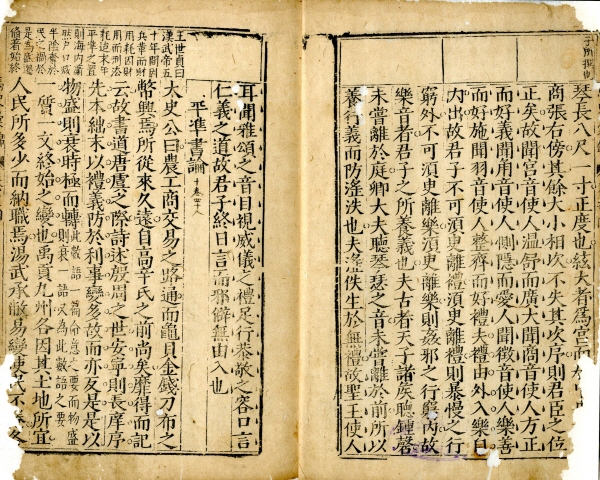 琴長八尺一寸正度也絃大者為宮而
商張右傍其餘大小相次不失其次序則君臣之位
正矣故聞宮音使人溫舒而廣大聞商音使人方正
而好義聞角音使人惻隱而愛人聞徵音使人樂善
而好施聞羽音使人整齊而好禮夫禮由外入樂自
内出故君子不可須臾離禮須臾離禮則暴慢之行
窮外不可須臾離樂須臾離樂則姦邪之行窮内故
樂音者君子之所養義也夫古者天子諸侯聽鍾磬
未嘗離於庭卿大夫聽琴瑟之音未嘗離於前所以
養行義而防淫泆也夫淫佚生於無禮故聖王使人
耳聞雅頌之音目視威儀之禮足行恭敬之容口言
仁義之道故君子終日言而邪僻無由入也
平準書論
太史公曰農工商交易之路通而龜貝金錢刀布之
幣興焉所從來久遠自高辛氏之前尚矣靡得而記
云故書道唐虞之際詩述殷周之世安寧則長庠序
先本絀末以禮義防於利事變多故而亦反是是以
物盛則衰時極而轉此數語一篇命意之要而物盛則衰一語又為此數語之要
一質一文終始之變也禹貢九州各因其土地所宜
人民所多少而納職焉湯武承敝易變使民不
王世貞曰
漢武帝五
十年間因
兵革而財
用耗因財
用而刑
迨末年
平準之置
則海内蕭
然戶口减
半陰奪於
民之禍於
是為遷
備著始終